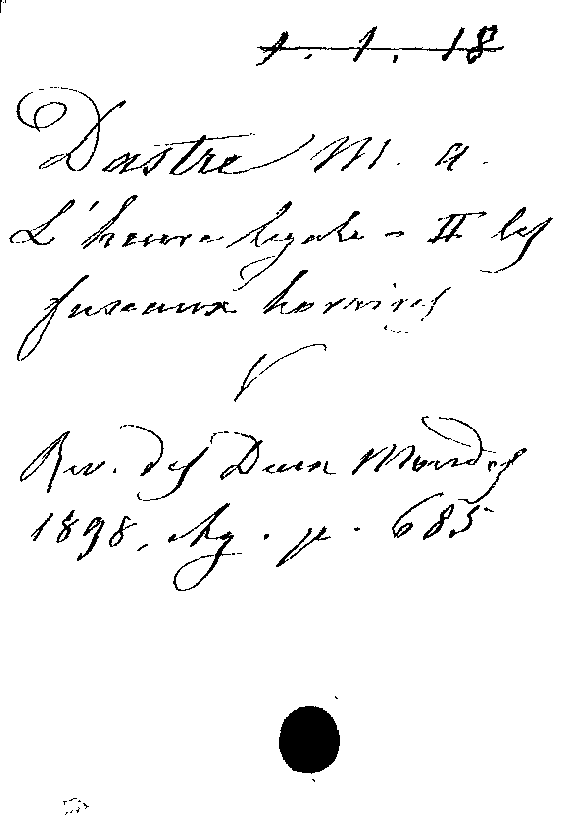 1. 1. 18
Dastre M. A.
L'heure legale - II les
fuseaux horaires
Rev. des Deux Mondes
1898, Ag. p. 685